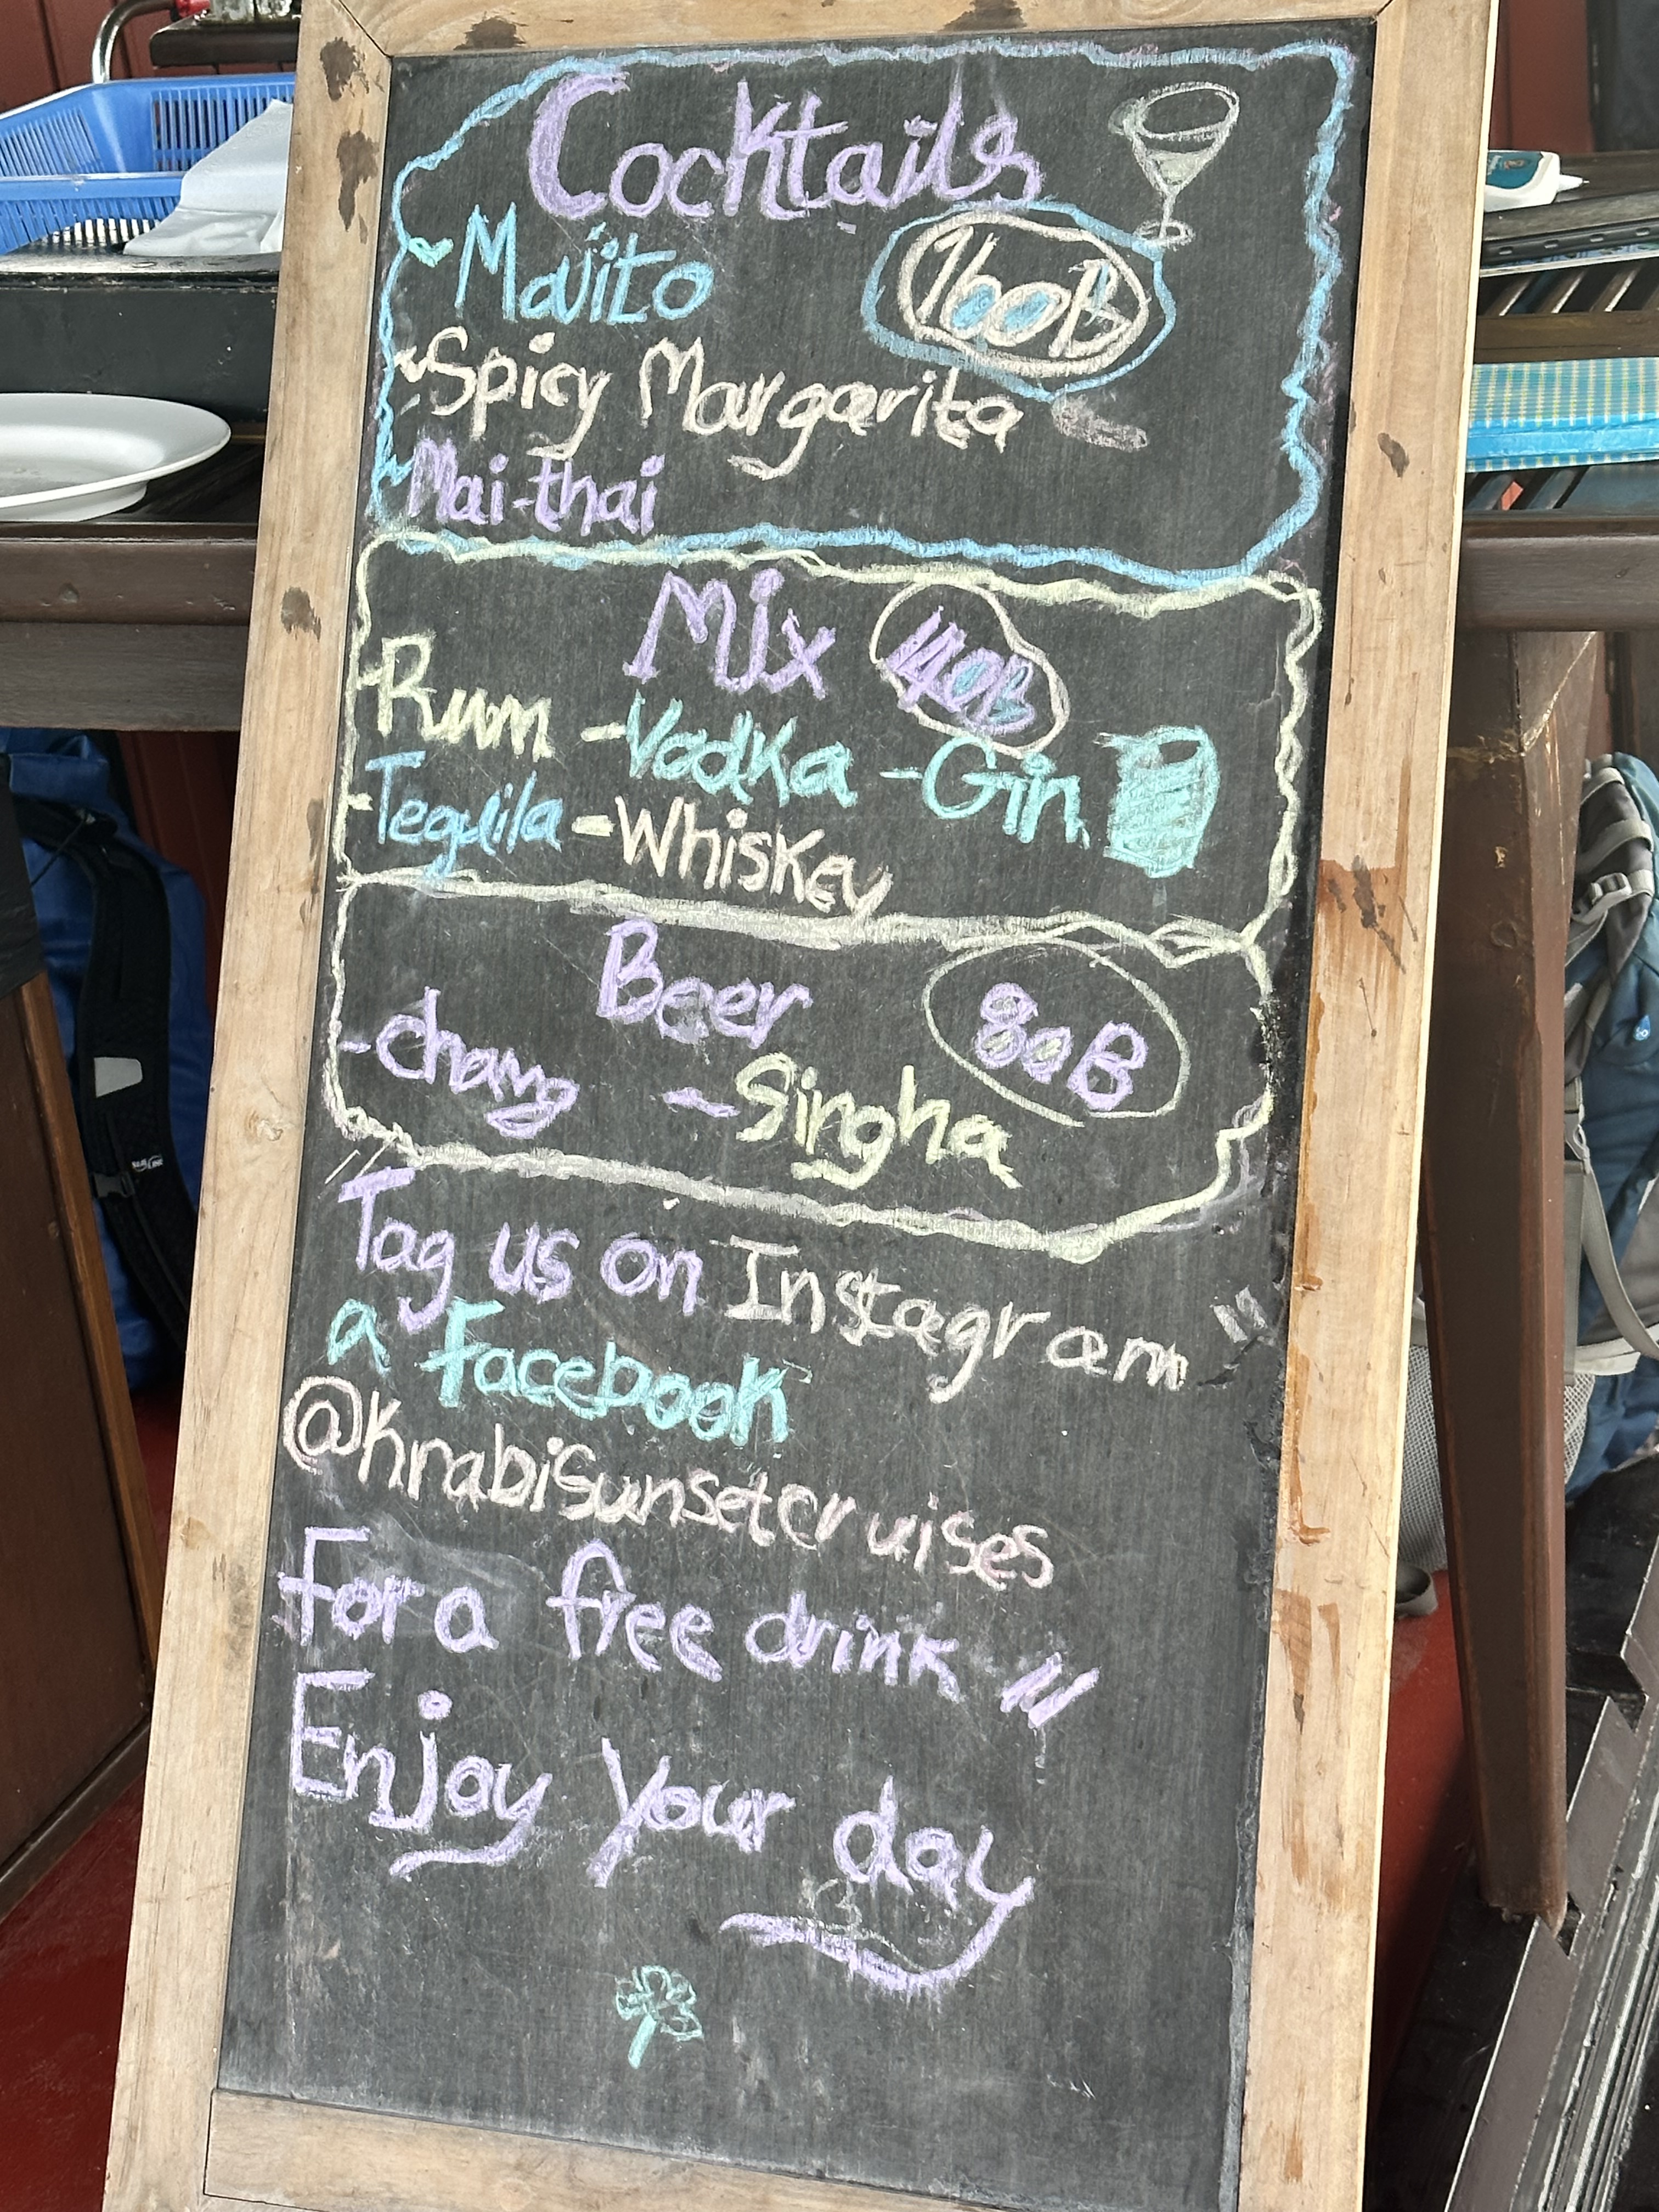 Cocktails
- Mojito 160B
- Spicy Margarita
- Mai-thai
Mix 140B
- Rum - Vodka - Gin
- Tequila - Whiskey
Beer 80B
- Chang - Singha
Tag us on Instagram "
a Facebook
@krabisunsetcruises
For a free drink "
Enjoy your day